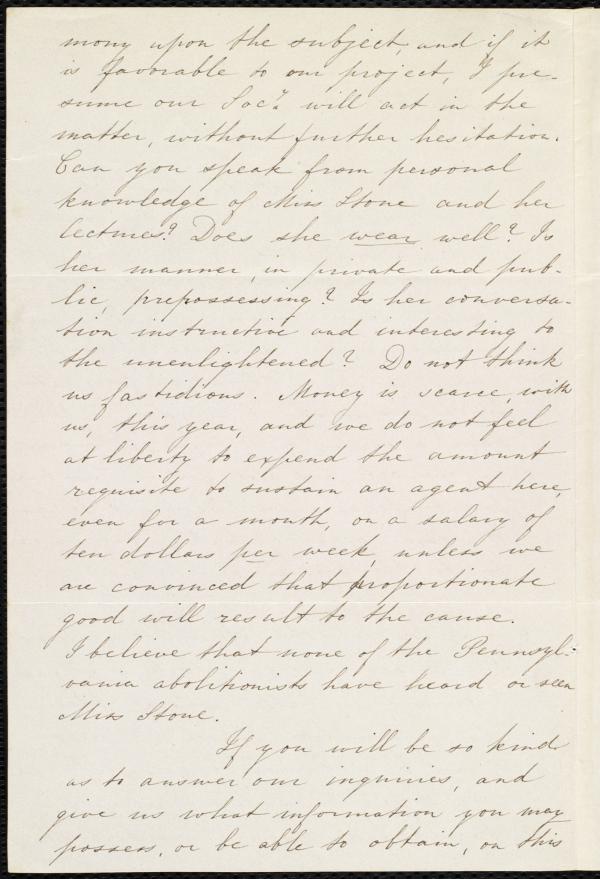 mony upon the subject, and if it
is favorable to our project, I pre-
sume our Socy. will act in the
matter, without further hesitation.
Can you speak from personal
knowledge of Miss Stone and her
lectures? Does she wear well? Is
her manner, in private and pub-
lic, prepossessing? Is her conversa-
tion instructive and interesting to
the unenlightened? Do not think
us fastidious. Money is scarce, with
us, this year, and we do not feel
at liberty to expend the amount
requisite to sustain an agent here,
even for a month, on a salary of
ten dollars per week, unless we
are convinced that proportionate
good will result to the cause.
I believe that none of the Pennsyl-
vania abolitionists have heard or seen
Miss Stone.
If you will be so kind
as to answer our inquiries, and
give us what information you may
possess, or be able to obtain, on this